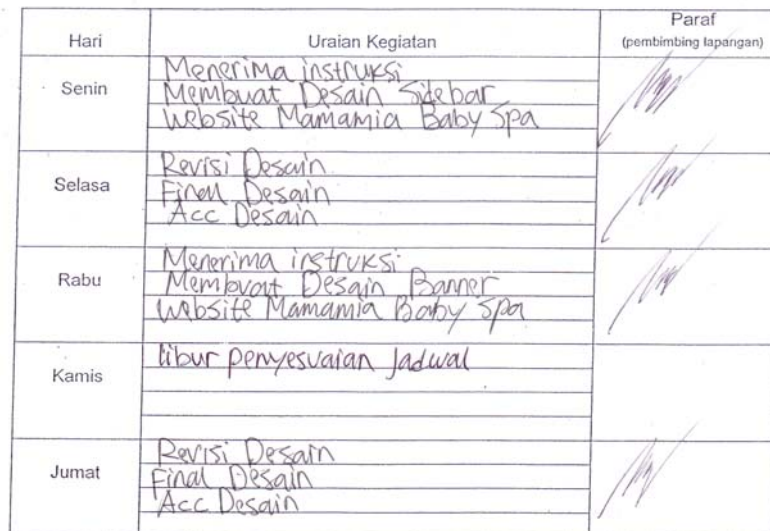 Hari Uraian Kegiatan Paraf
(pembimbing lapangan)
Senin
Menerima instruksi
Membuat Desain Sidebar
Website Mamamia Baby Spa
Selasa
Revisi Desain
Final Desain
Acc Desain
Rabu
Menerima instruksi
Membuat Desain Banner
Website Mamamia Baby Spa
Kamis
libur penyesuaian Jadwal
Jumat
Revisi Desain
Final Desain
Acc Desain